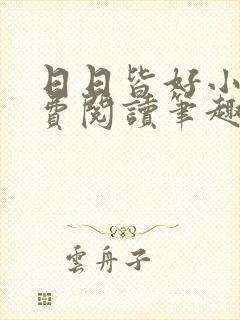 日日皆好小
費閱讀筆趣
雲舟子